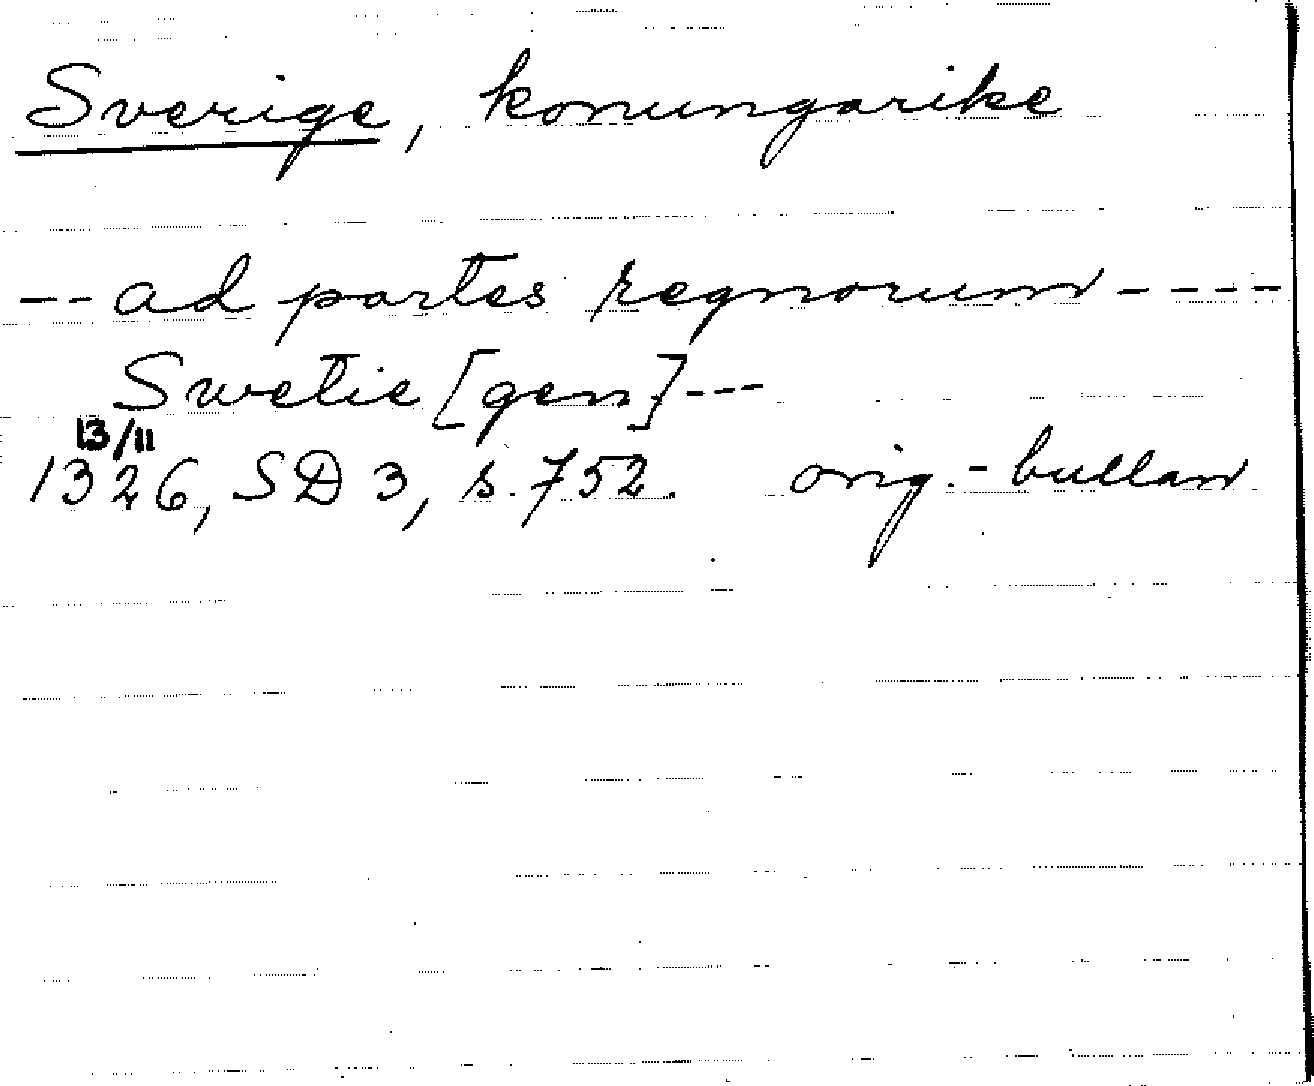 Sverige, konungarike
-- ad partes regnorum ----
Swetie [gen] ---
13/11
1326, SD 3, s. 752. orig.-bullan